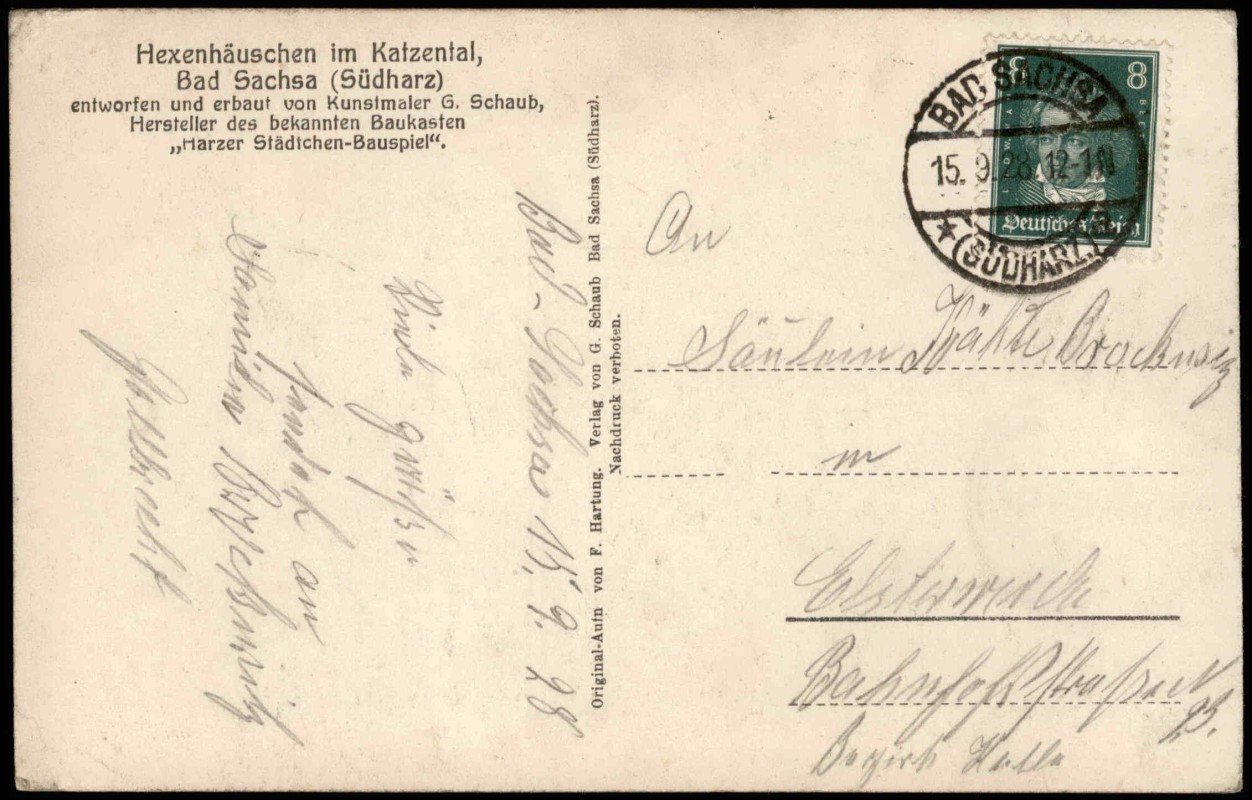 Hexenhäuschen im Katzental,
Bad Sachsa (Südharz)
entworfen und erbaut von Kunstmaler G. Schaub,
Hersteller des bekannten Baukasten
„Harzer Städtchen-Bauspiel“.
Bad-Sachsa 15. 9. 28
Viele Grüße
sendet an
Familie
Original-Autn von F. Hartung. Verlag von G. Schaub Bad Sachsa (Südharz).
Nachdruck verboten.
8 8
Deutsches Reich
BAD SACHSA
15. 9. 28. 12-1 N
★ (SÜDHARZ)
An
Fräulein Käthe
in
Elsterwerda
Bahnhofstraße
23.
Bezirk Halle